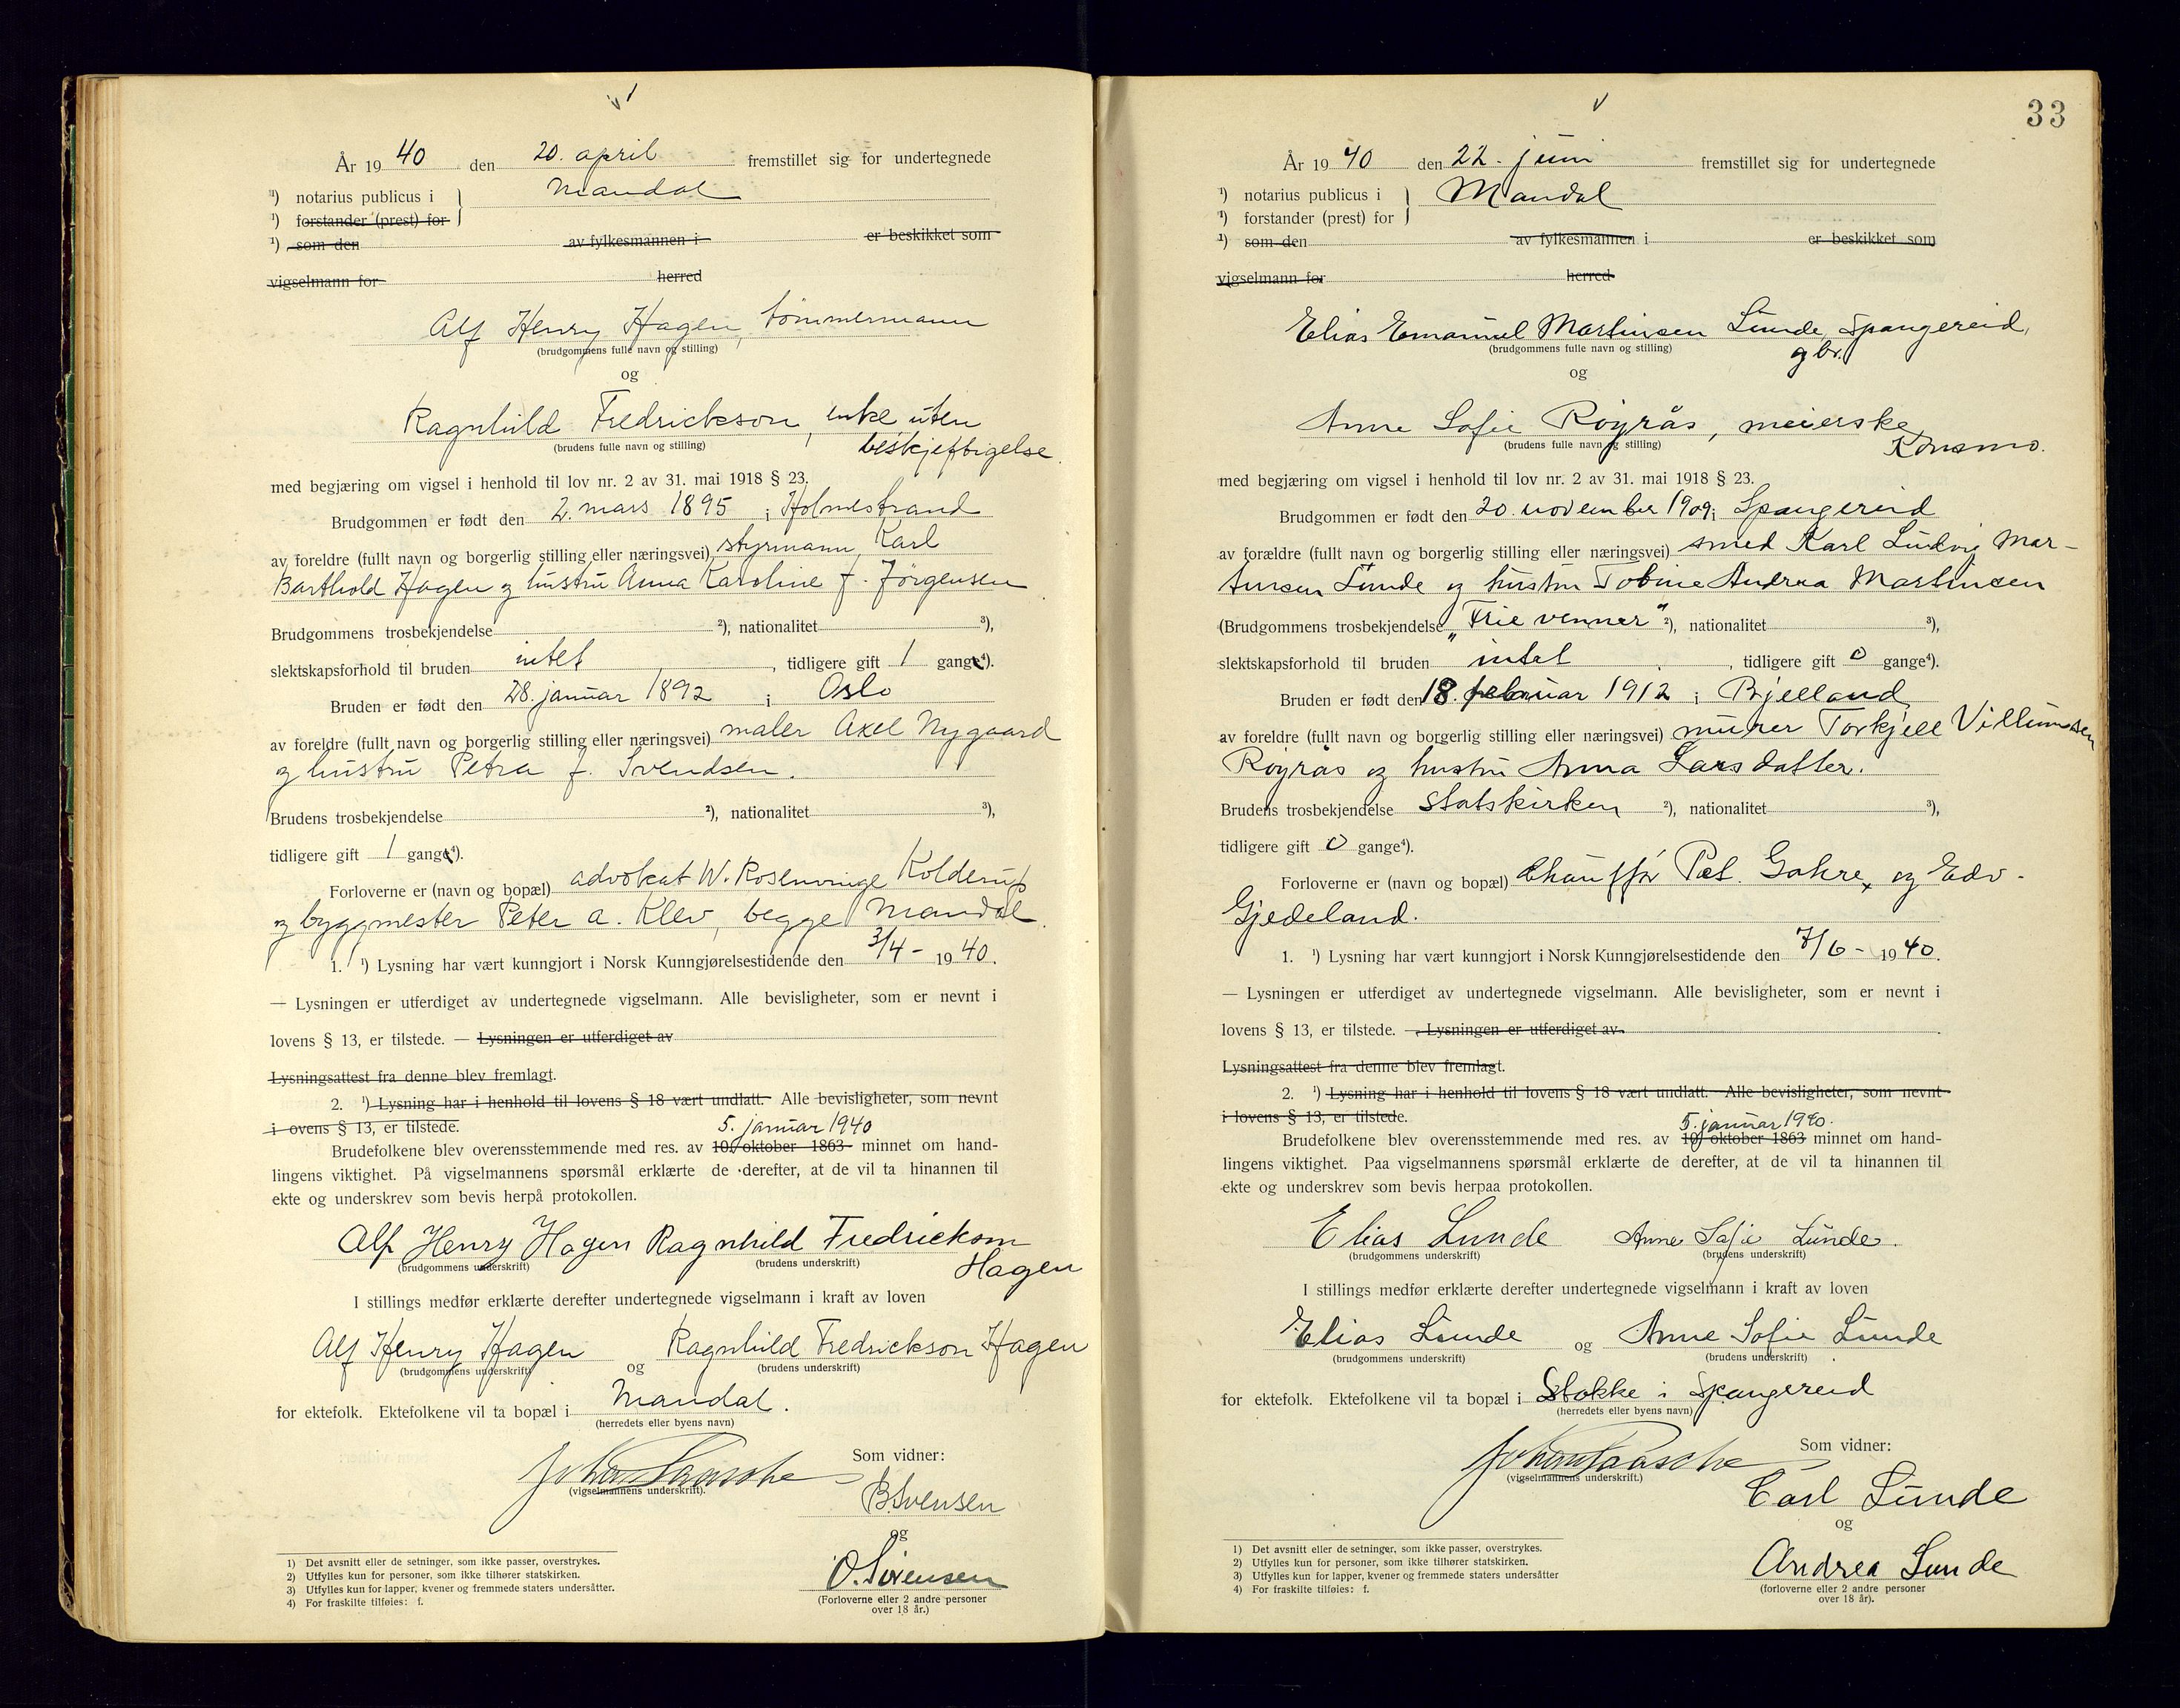 År 1940 den 20. april fremstillet sig for undertegnede
¹) notarius publicus i } Mandal
¹) forstander (prest) for
¹) som den av fylkesmannen i er beskikket som
vigselmann for herred
Alf Henry Hagen, tömmermann
(brudgommens fulle navn og stilling)
og
Ragnhild Fredrickson, enke uten
(brudens fulle navn og stilling) beskjeftigelse.
med begjæring om vigsel i henhold til lov nr. 2 av 31. mai 1918 § 23.
Brudgommen er født den 2. mars 1895 i Holmestrand
av foreldre (fullt navn og borgerlig stilling eller næringsvei) styrmann Karl
Barthold Hagen og hustru Anna Karoline f. Jörgensen
Brudgommens trosbekjendelse ²), nationalitet ³),
slektskapsforhold til bruden intet, tidligere gift 1 gange⁴).
Bruden er født den 28. januar 1892 i Oslo
av foreldre (fullt navn og borgerlig stilling eller næringsvei) maler Axel Nygaard
og hustru Petra f. Svendsen.
Brudens trosbekjendelse ²), nationalitet ³),
tidligere gift 1 gange⁴).
Forloverne er (navn og bopæl) advokat W. Rosenvinge Kolderup
og byggmester Peter A. Klev, begge Mandal.
1. ¹) Lysning har vært kunngjort i Norsk Kunngjørelsestidende den 3/4 - 1940.
— Lysningen er utferdiget av undertegnede vigselmann. Alle bevisligheter, som er nevnt i
lovens § 13, er tilstede. — Lysningen er utferdiget av
Lysningsattest fra denne blev fremlagt.
2. ¹) Lysning har i henhold til lovens § 18 vært undlatt. Alle bevisligheter, som nevnt
i ovens § 13, er tilstede. 5. januar 1940
Brudefolkene blev overensstemmende med res. av 10. oktober 1863 minnet om hand-
lingens viktighet. På vigselmannens spørsmål erklærte de derefter, at de vil ta hinannen til
ekte og underskrev som bevis herpå protokollen.
Alf Henry Hagen Ragnhild Fredrickson
(brudgommens underskrift) (brudens underskrift) Hagen
I stillings medfør erklærte derefter undertegnede vigselmann i kraft av loven
Alf Henry Hagen og Ragnhild Fredrickson Hagen
(brudgommens underskrift) (brudens underskrift)
for ektefolk. Ektefolkene vil ta bopæl i Mandal.
(herredets eller byens navn)
Som vidner:
Johan Paasche
(vigselmannens underskrift).
B. Svensen
og
O. Sörensen
(Forloverne eller 2 andre personer
over 18 år.)
1) Det avsnitt eller de setninger, som ikke passer, overstrykes.
2) Utfylles kun for personer, som ikke tilhører statskirken.
3) Utfylles kun for lapper, kvener og fremmede staters undersåtter.
4) For fraskilte tilføies: f.
33
År 1940 den 22. juni fremstillet sig for undertegnede
¹) notarius publicus i } Mandal
¹) forstander (prest) for
¹) som den av fylkesmannen i er beskikket som
vigselmann for herred
Elias Emanuel Martinsen Lunde, Spangereid,
(brudgommens fulle navn og stilling) gbr.
og
Anne Sofie Röyrås, meierske,
(brudens fulle navn og stilling) Konsmo.
med begjæring om vigsel i henhold til lov nr. 2 av 31. mai 1918 § 23.
Brudgommen er født den 20. november 1909 i Spangereid
av forældre (fullt navn og borgerlig stilling eller næringsvei) smed Karl Ludvig Mar-
tinsen Lunde og hustru Tobine Andrea Martinsen
(Brudgommens trosbekjendelse „Frie venner" ²), nationalitet ³),
slektskapsforhold til bruden intet, tidligere gift 0 gange⁴).
Bruden er født den 18. februar 1912 i Bjelland
av foreldre (fullt navn og borgerlig stilling eller næringsvei) murer Torkjell Villumsen
Röyrås og hustru Anna Larsdatter.
Brudens trosbekjendelse statskirken ²), nationalitet ³),
tidligere gift 0 gange⁴).
Forloverne er (navn og bopæl) Chaufför Pet. Gahre, og Edv.
Gjedeland.
1. ¹) Lysning har vært kunngjort i Norsk Kunngjørelsestidende den 7/6 - 1940.
— Lysningen er utferdiget av undertegnede vigselmann. Alle bevisligheter, som er nevnt i
lovens § 13, er tilstede. — Lysningen er utferdiget av
Lysningsattest fra denne blev fremlagt.
2. ¹) Lysning har i henhold til lovens § 18 vært undlatt. Alle bevisligheter, som nevnt
i lovens § 13, er tilstede. 5. januar 1940.
Brudefolkene blev overensstemmende med res. av 10. oktober 1863 minnet om hand-
lingens viktighet. Paa vigselmannens spørsmål erklærte de derefter, at de vil ta hinannen til
ekte og underskrev som bevis herpaa protokollen.
Elias Lunde Anne Sofie Lunde.
(brudgommens underskrift) (brudens underskrift)
I stillings medfør erklærte derefter undertegnede vigselmann i kraft av loven
Elias Lunde og Anne Sofie Lunde
(brudgommens underskrift) (brudens underskrift)
for ektefolk. Ektefolkene vil ta bopæl i Stokke i Spangereid
(herredets eller byens navn)
Som vidner:
Johan Paasche
(vigselmannens underskrift.)
Carl Lunde
og
Andrea Lunde
(forloverne eller 2 andre personer
over 18 år).
1) Det avsnitt eller de setninger, som ikke passer, overstrykes.
2) Utfylles kun for personer, som ikke tilhører statskirken.
3) Utfylles kun for lapper, kvener og fremmede staters undersåtter
4) For fraskilte tilføies: f.